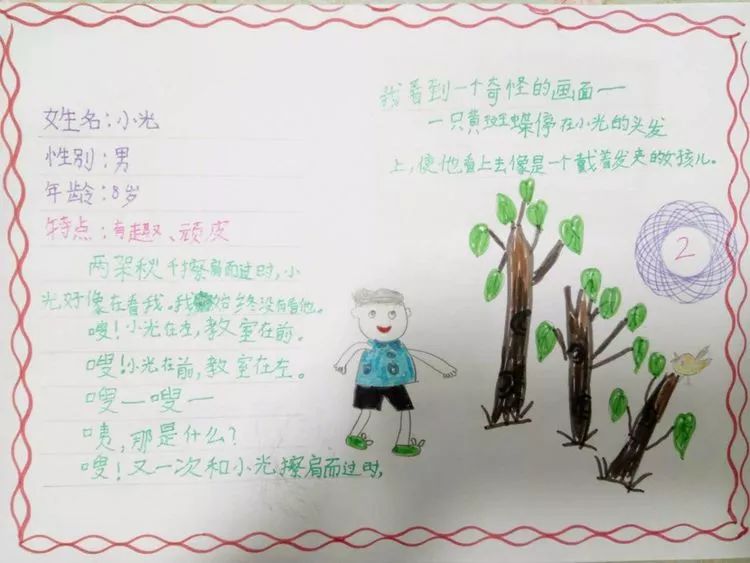 女生名:小光
性别:男
年龄:8岁
特点:有趣、顽皮
两架秋千擦肩而过时,小
光好像在看我。我始终没有看他。
嗖!小光在左,教室在前。
嗖!小光在前,教室在左。
嗖—嗖—
咦,那是什么?
嗖!又一次和小光擦肩而过时,
我看到一个奇怪的画面—
一只黄斑蝶停在小光的头发
上,使他看上去像是一个戴着发夹的女孩儿。
2